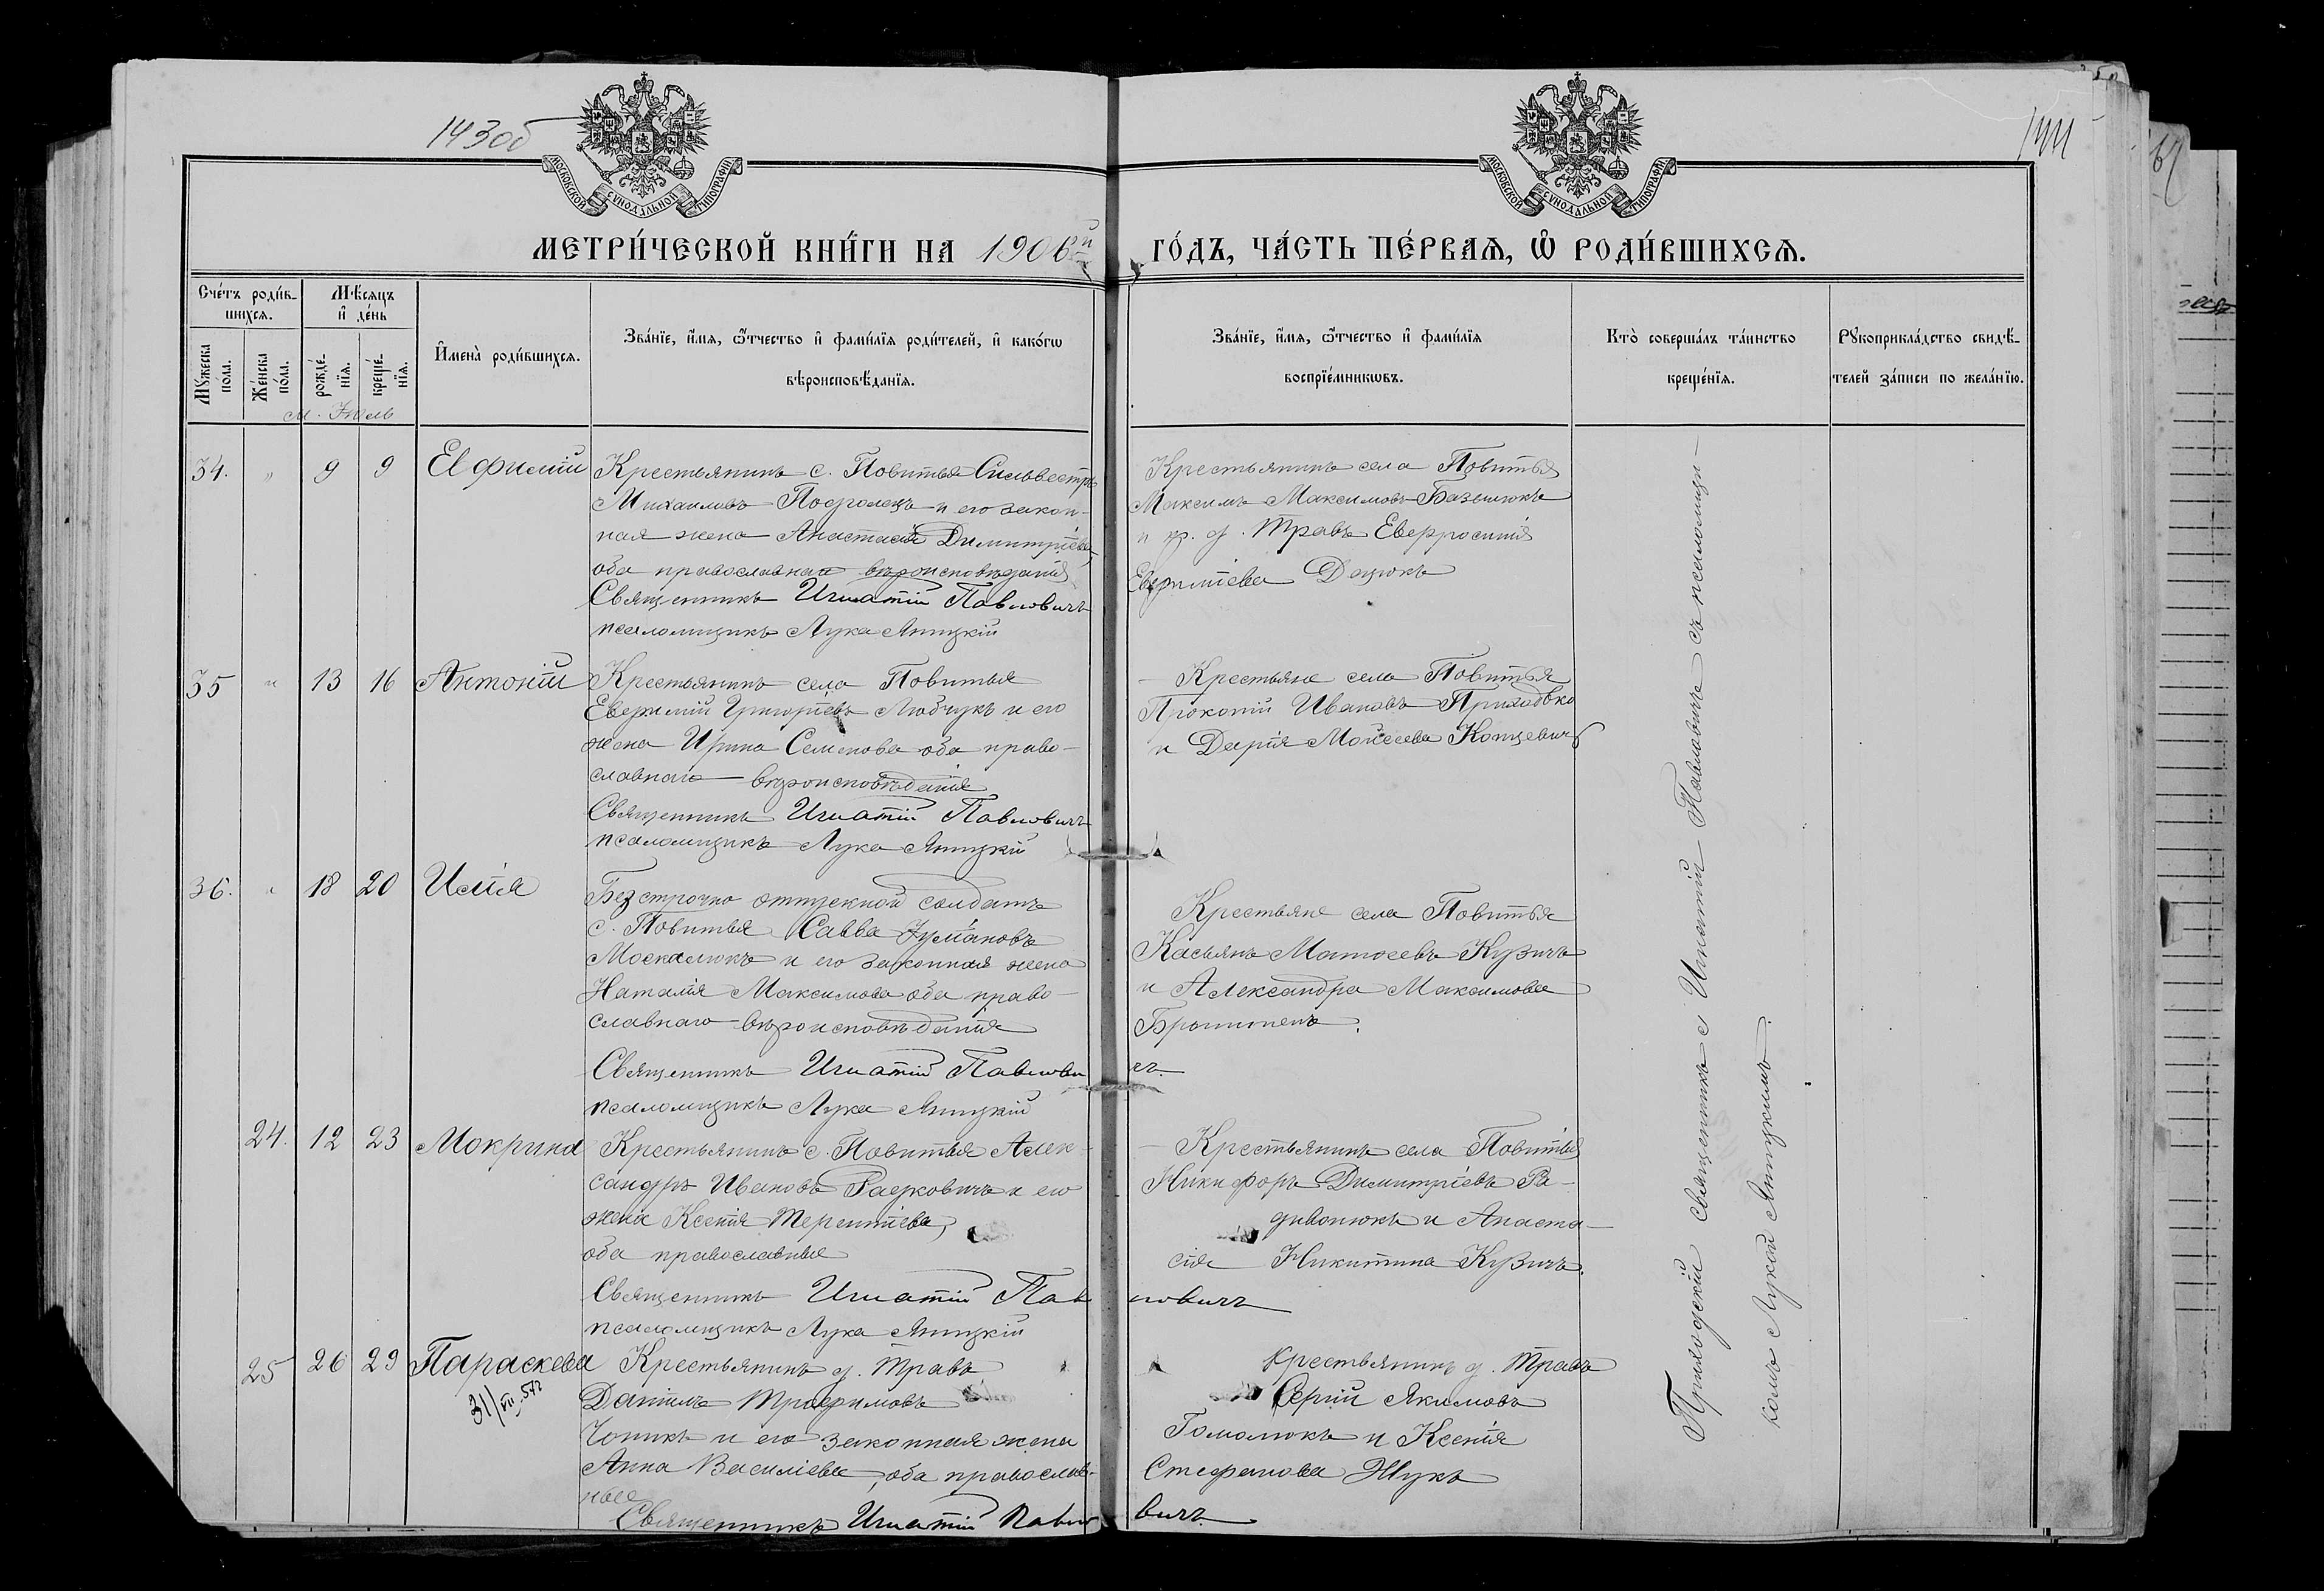 143об
144
МОСКОВСКОЙ СѴНОДАЛЬНОЙ ТИПОГРАФІИ
МОСКОВСКОЙ СѴНОДАЛЬНОЙ ТИПОГРАФІИ
МЕТРИ́ЧЕСКОЙ КНИ́ГИ НА 1906й ГО́ДЪ, ЧА́СТЬ ПЕ́РВАѦ, Ѽ РОДИ́ВШИХСѦ.
Счéтъ роди́в-
шихсѧ.
Мꙋ́жеска по́ла.
Жéнска по́ла.
Мѣ́сѧцъ
и҆ дéнь
рождé-
нїѧ.
крещé-
нїѧ.
м. Іюль
И҆мена̀ роди́вшихсѧ.
Зва́нїе, и҆́мѧ, ѻ҆́тчество и҆ фами́лїѧ роди́телей, и҆ како́гѡ
вѣроисповѣ́данїѧ.
Зва́нїе, и҆́мѧ, ѻ҆́тчество и҆ фами́лїѧ
воспрїе́мникѡвъ.
Кто̀ соверша́лъ та́инство
креще́нїѧ.
Рꙋкоприкла́дство свидѣ́-
телей за́писи по жела́нїю.
34. " 9 9 Евфимій
Крестьянинъ с. Повитья Сильвестръ
Михаиловъ Подолецъ и его закон-
ная жена Анастасія Димитріева,
оба православнаго вѣроисповѣданія
Священникъ Игнатій Павловичъ
псаломщикъ Лука Яницкій
Крестьянинъ села Повитья
Максимъ Максимовъ Базылюкъ
и кр. д. Травъ Евфросинія
Евфиміева Дацюкъ
35 " 13 16 Антоній
Крестьянинъ села Повитья
Евфимій Григоріевъ Любчукъ и его
жена Ирина Семенова оба право-
славнаго вѣроисповѣданія
Священникъ Игнатій Павловичъ
псаломщикъ Лука Яницкій
Крестьяне села Повитья
Прокопій Ивановъ Приходько
и Дарія Моисеева Концевичъ
36. " 18 20 Илія
Безсрочно отпускной солдатъ
с. Повитья Савва Іуліановъ
Москалюкъ и его законная жена
Наталія Максимова оба право-
славнаго вѣроисповѣданія
Священникъ Игнатій Павлови чъ.
псаломщикъ Лука Яницкій
Крестьяне села Повитья
Касьянъ Матѳеевъ Кузичъ
и Александра Максимова
24. 12 23 Мокрина
Крестьянинъ с. Повитья Алек-
сандръ Ивановъ Расковичъ и его
жена Ксенія Терентіева,
оба православные
Священникъ Игнатій Пав ловичъ
псаломщикъ Лука Яницкій
Крестьянинъ села Повитья
Никифоръ Димитріевъ Ра-
дивонюкъ и Анаста-
сія Никитина Кузичъ.
25 26 29 Параскева
Крестьянинъ д. Травъ
Даніилъ Трофимовъ
Чоникъ и его законная жена
Анна Василіева, оба православ-
ные
Священникъ Игнатій Павло вичъ
Крестьянинъ д. Травъ
Сергій Якимовъ
Гомолюкъ и Ксенія
Стефанова Жукъ
Приходскій священникъ Игнатій Павловичъ съ псаломщи-
комъ Лукой Яницкимъ.